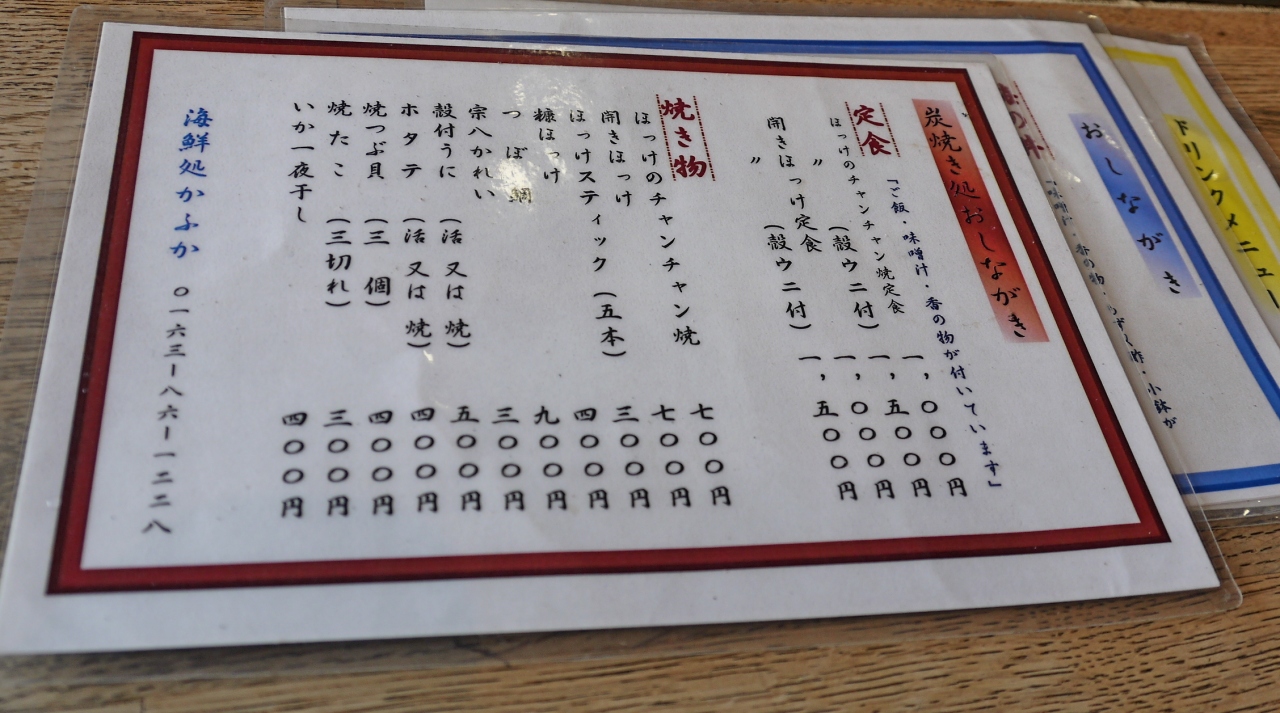 炭焼き処おしながき
「ご飯・味噌汁・香の物が付いています」
定食
ほっけのチャンチャン焼定食 一,〇〇〇円
〃 (殻ウニ付) 一,五〇〇円
開きほっけ定食 一,〇〇〇円
〃 (殻ウニ付) 一,五〇〇円
焼き物
ほっけのチャンチャン焼 七〇〇円
開きほっけ 七〇〇円
ほっけスティック (五本) 三〇〇円
糠ほっけ 四〇〇円
つぼ鯛 九〇〇円
宗八かれい 三〇〇円
殻付うに (活又は焼) 五〇〇円
ホタテ (活又は焼) 四〇〇円
焼つぶ貝 (三個) 四〇〇円
焼たこ (三切れ) 三〇〇円
いか一夜干し 四〇〇円
海鮮処かふか 〇一六三ー八六ー一二二八
おしながき
味噌汁・香の物・もずく酢・小鉢が
ドリンクメニュー